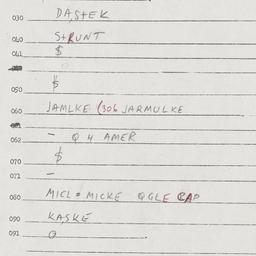 030 DA,S+EK
040 S+RUNT
041 $
$
050
060 JAMLKE (306 JARMULKE
062 - Q 4 AMER
$
070
071 -
080 MICL = MICKE QGLE CAP
090 KA,SKE
091 O